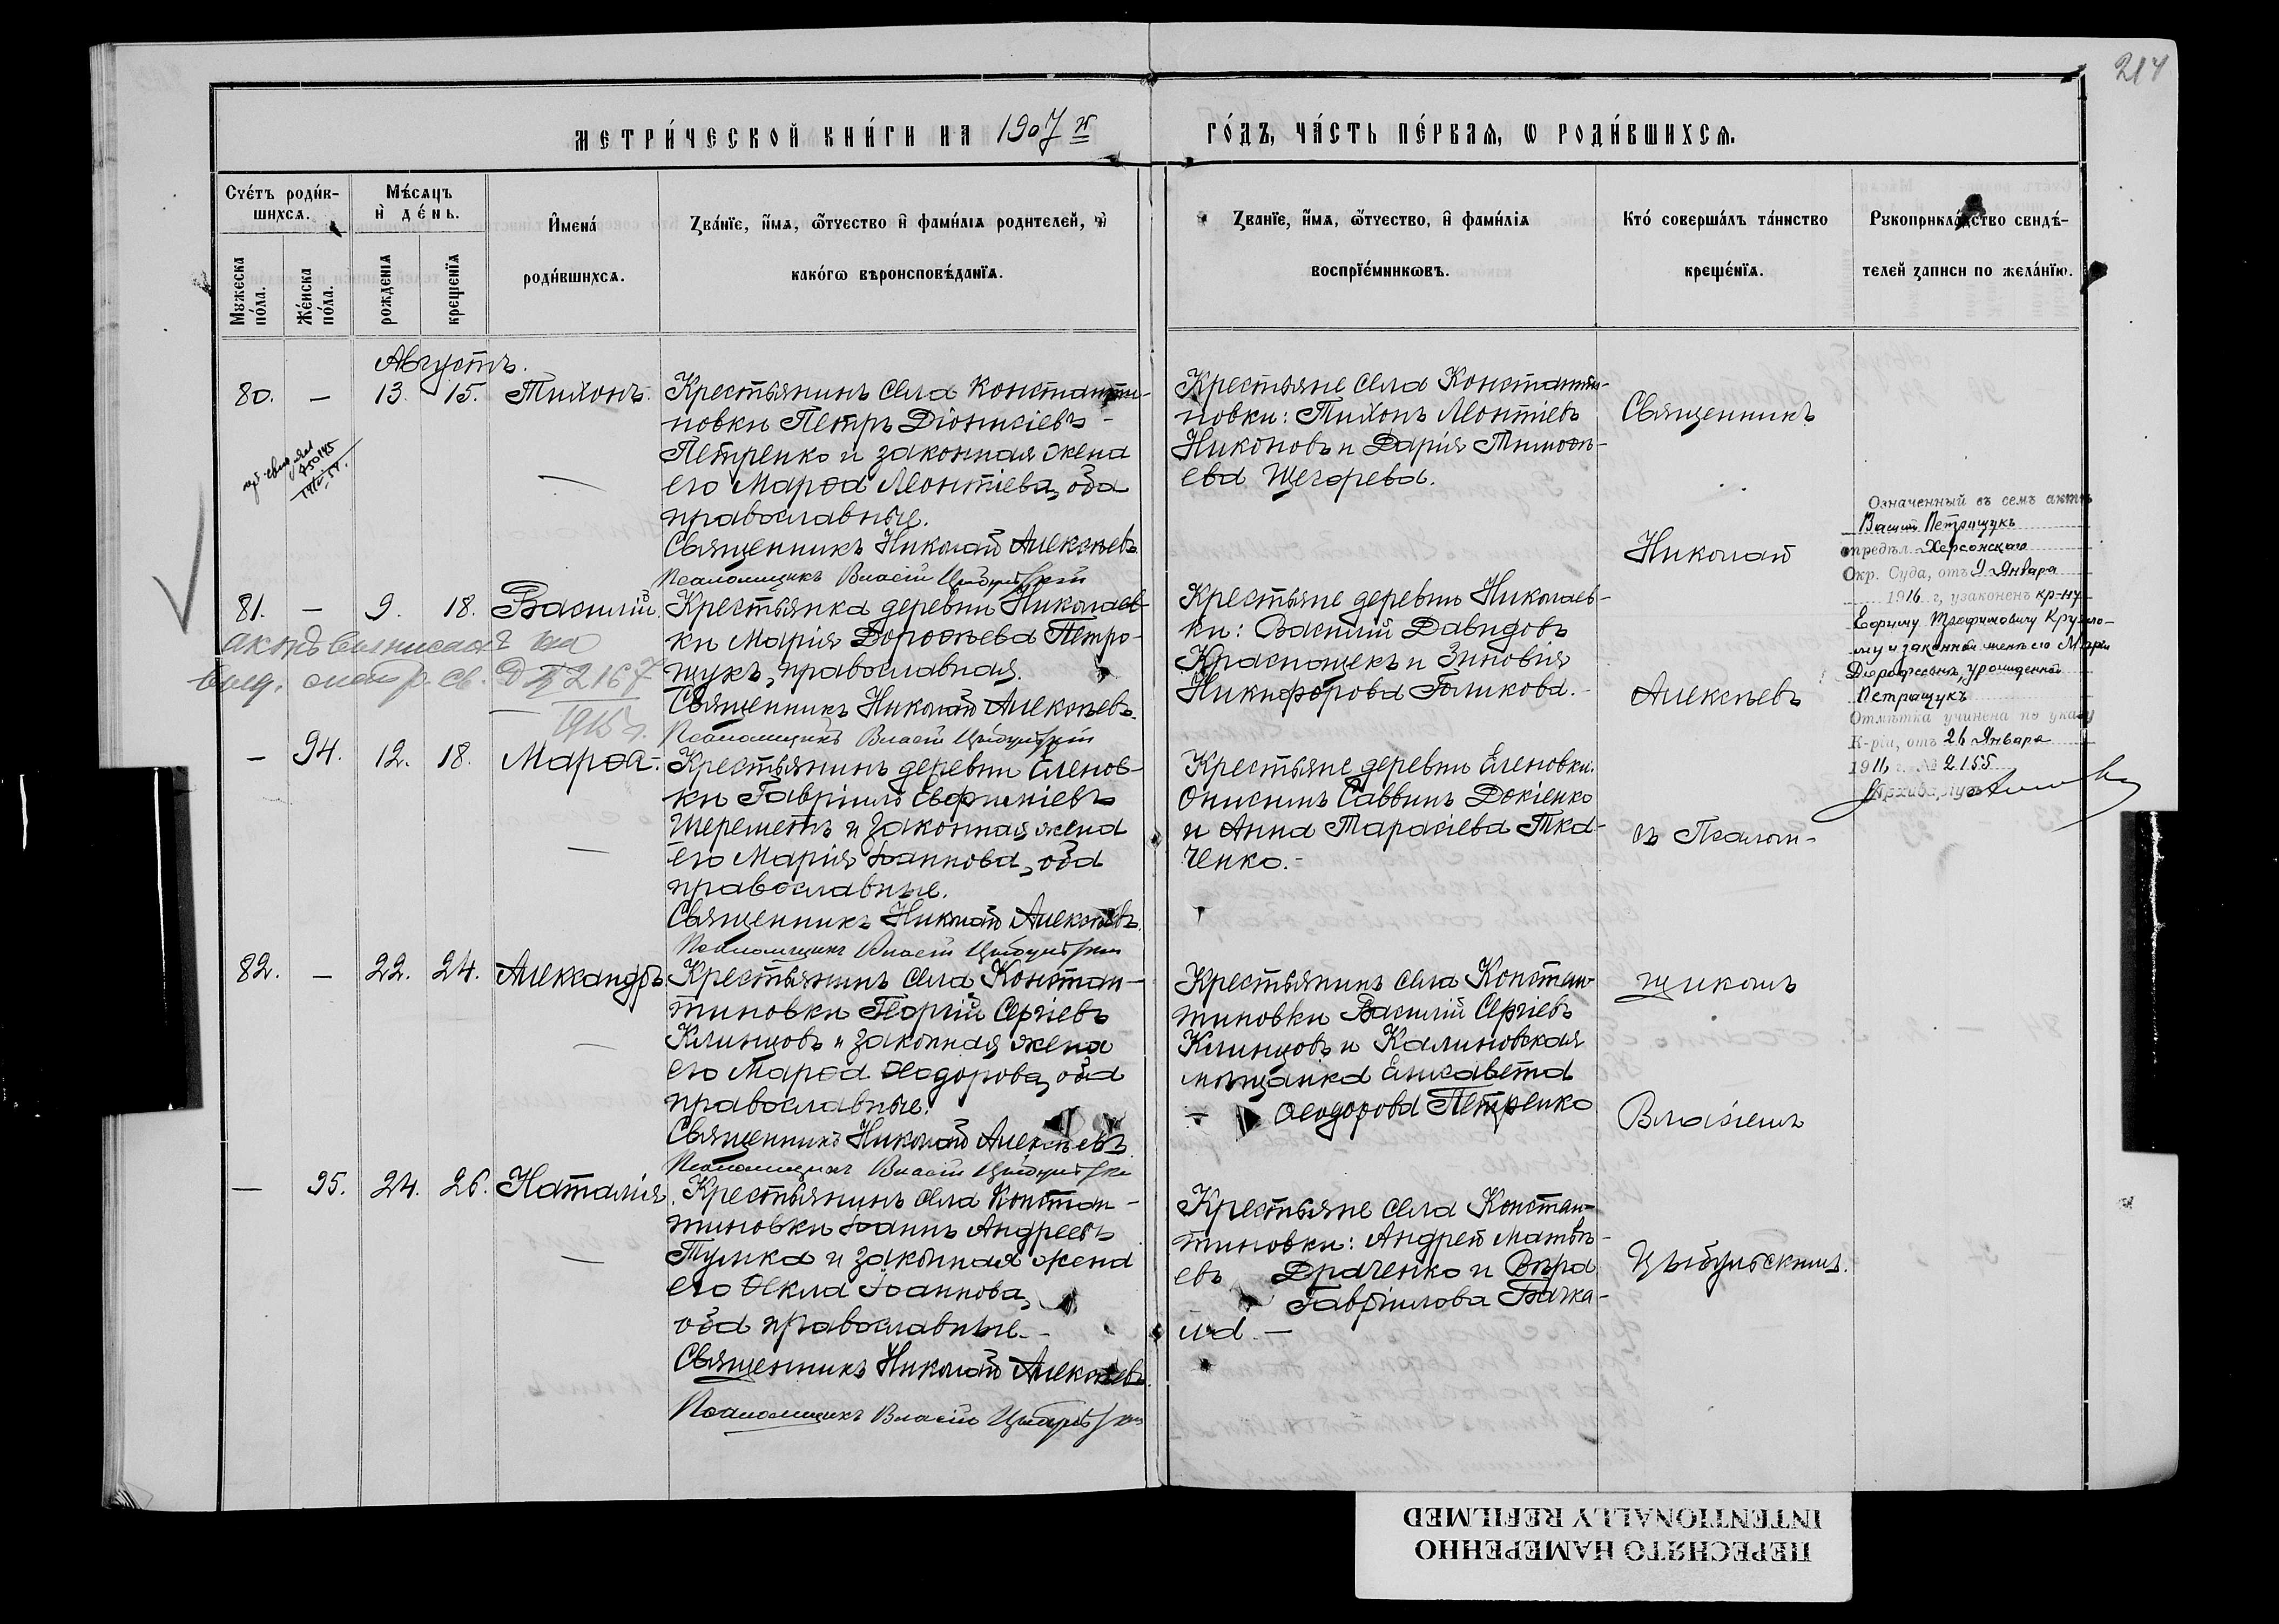 214
МЕТРИ́ЧЕСКОЙ КНИ́ГИ НА 1907й ГО́ДЪ, ЧА́СТЬ ПЕ́РВАѦ, Ѡ РОДИ́ВШИХСѦ.
Счетъ родив-
шихсѧ.
Мужеска пола.
Женска пола.
Мѣсѧцъ
и день.
рожденїѧ
крещенїѧ
Имена
родившихсѧ.
Званїе, имѧ, ѿчество и фамилїѧ родителей, и
какогѡ вѣроисповѣданїѧ.
Званїе, имѧ, ѿчество, и фамилїѧ
воспрїемниковъ.
Кто совершалъ таинство
крещенїѧ.
Рукоприкладство свидѣ-
телей записи по желанїю.
Августъ.
80. — 13. 15. Тихонъ.
Крестьянинъ села Константи-
новки Петръ Діонисіевъ
Петренко и законная жена
его Марѳа Леонтіева, оба
православные.
Священникъ Николай Алексѣевъ
Псаломщикъ Власій Цыбульскій
Крестьяне села Константи-
новки: Тихонъ Леонтіевъ
Никоновъ и Дарія Тимоѳе-
ева Щегорева.
81. — 9. 18. Василій.
актъ выписалъ на
метр. св. 2167
1915 г.
Крестьянка деревни Николаев-
ки Марія Дороѳѣева Петро-
щукъ, православная.
Священникъ Николай Алексѣевъ.
Псаломщикъ Власій Цыбульскій
Крестьяне деревни Николаев-
ки: Василій Давидовъ
Краснощекъ и Зиновія
Никифорова Голикова.
Означенный въ семъ актѣ
Василій Петращукъ
опредѣл. Херсонскаго
Окр. Суда, отъ 9 Января
1916 г, узаконенъ кр-ну
Ефриму Трофимовичу
му и законной женѣ его Маріи
Дорофеевнѣ, урожденной
Петращукъ
Отмѣтка учинена по указу
К-ріи, отъ 26 Января
1916 г. № 2155
— 94. 12. 18. Марѳа.
Крестьянинъ деревни Еленов-
ки Гавріилъ Евфиміевъ
Шереметъ и законная жена
его Марія Іоаннова, оба
православные.
Священникъ Николай Алексѣевъ.
Псаломщикъ Власій Цыбульскій
Крестьяне деревни Еленовки.
Онисимъ Саввинъ Докіенко
и Анна Тарасіева Тка-
ченко.
82. — 22. 24. Александръ.
Крестьянинъ села Констан-
тиновки Георгій Сергіевъ
Клинцовъ и законная жена
его Марѳа Ѳеодорова, оба
православные.
Священникъ Николай Алексѣевъ.
Псаломщикъ Власій Цыбульскій
Крестьянинъ села Констан-
тиновки Василій Сергіевъ
Клинцовъ и Калиновская
мѣщанка Елисавета
Ѳеодорова Петренко
— 95. 24. 26. Наталія.
Крестьянинъ села Констан-
тиновки Іоаннъ Андреевъ
Тулика и законная жена
его Ѳекла Іоаннова,
оба православные.
Священникъ Николай Алексѣевъ.
Псаломщикъ Власій Цыбульскій
Крестьяне села Констан-
тиновки: Андрей Матвѣ-
евъ Драченко и Вѣра
Гавріилова Бачка-
ла. —
Священникъ
Николай
Алексѣевъ
съ Псалом-
щикомъ
Власіемъ
Цыбульскимъ.
ПЕРЕСНЯТО НАМЕРЕННО
INTENTIONALLY REFILMED